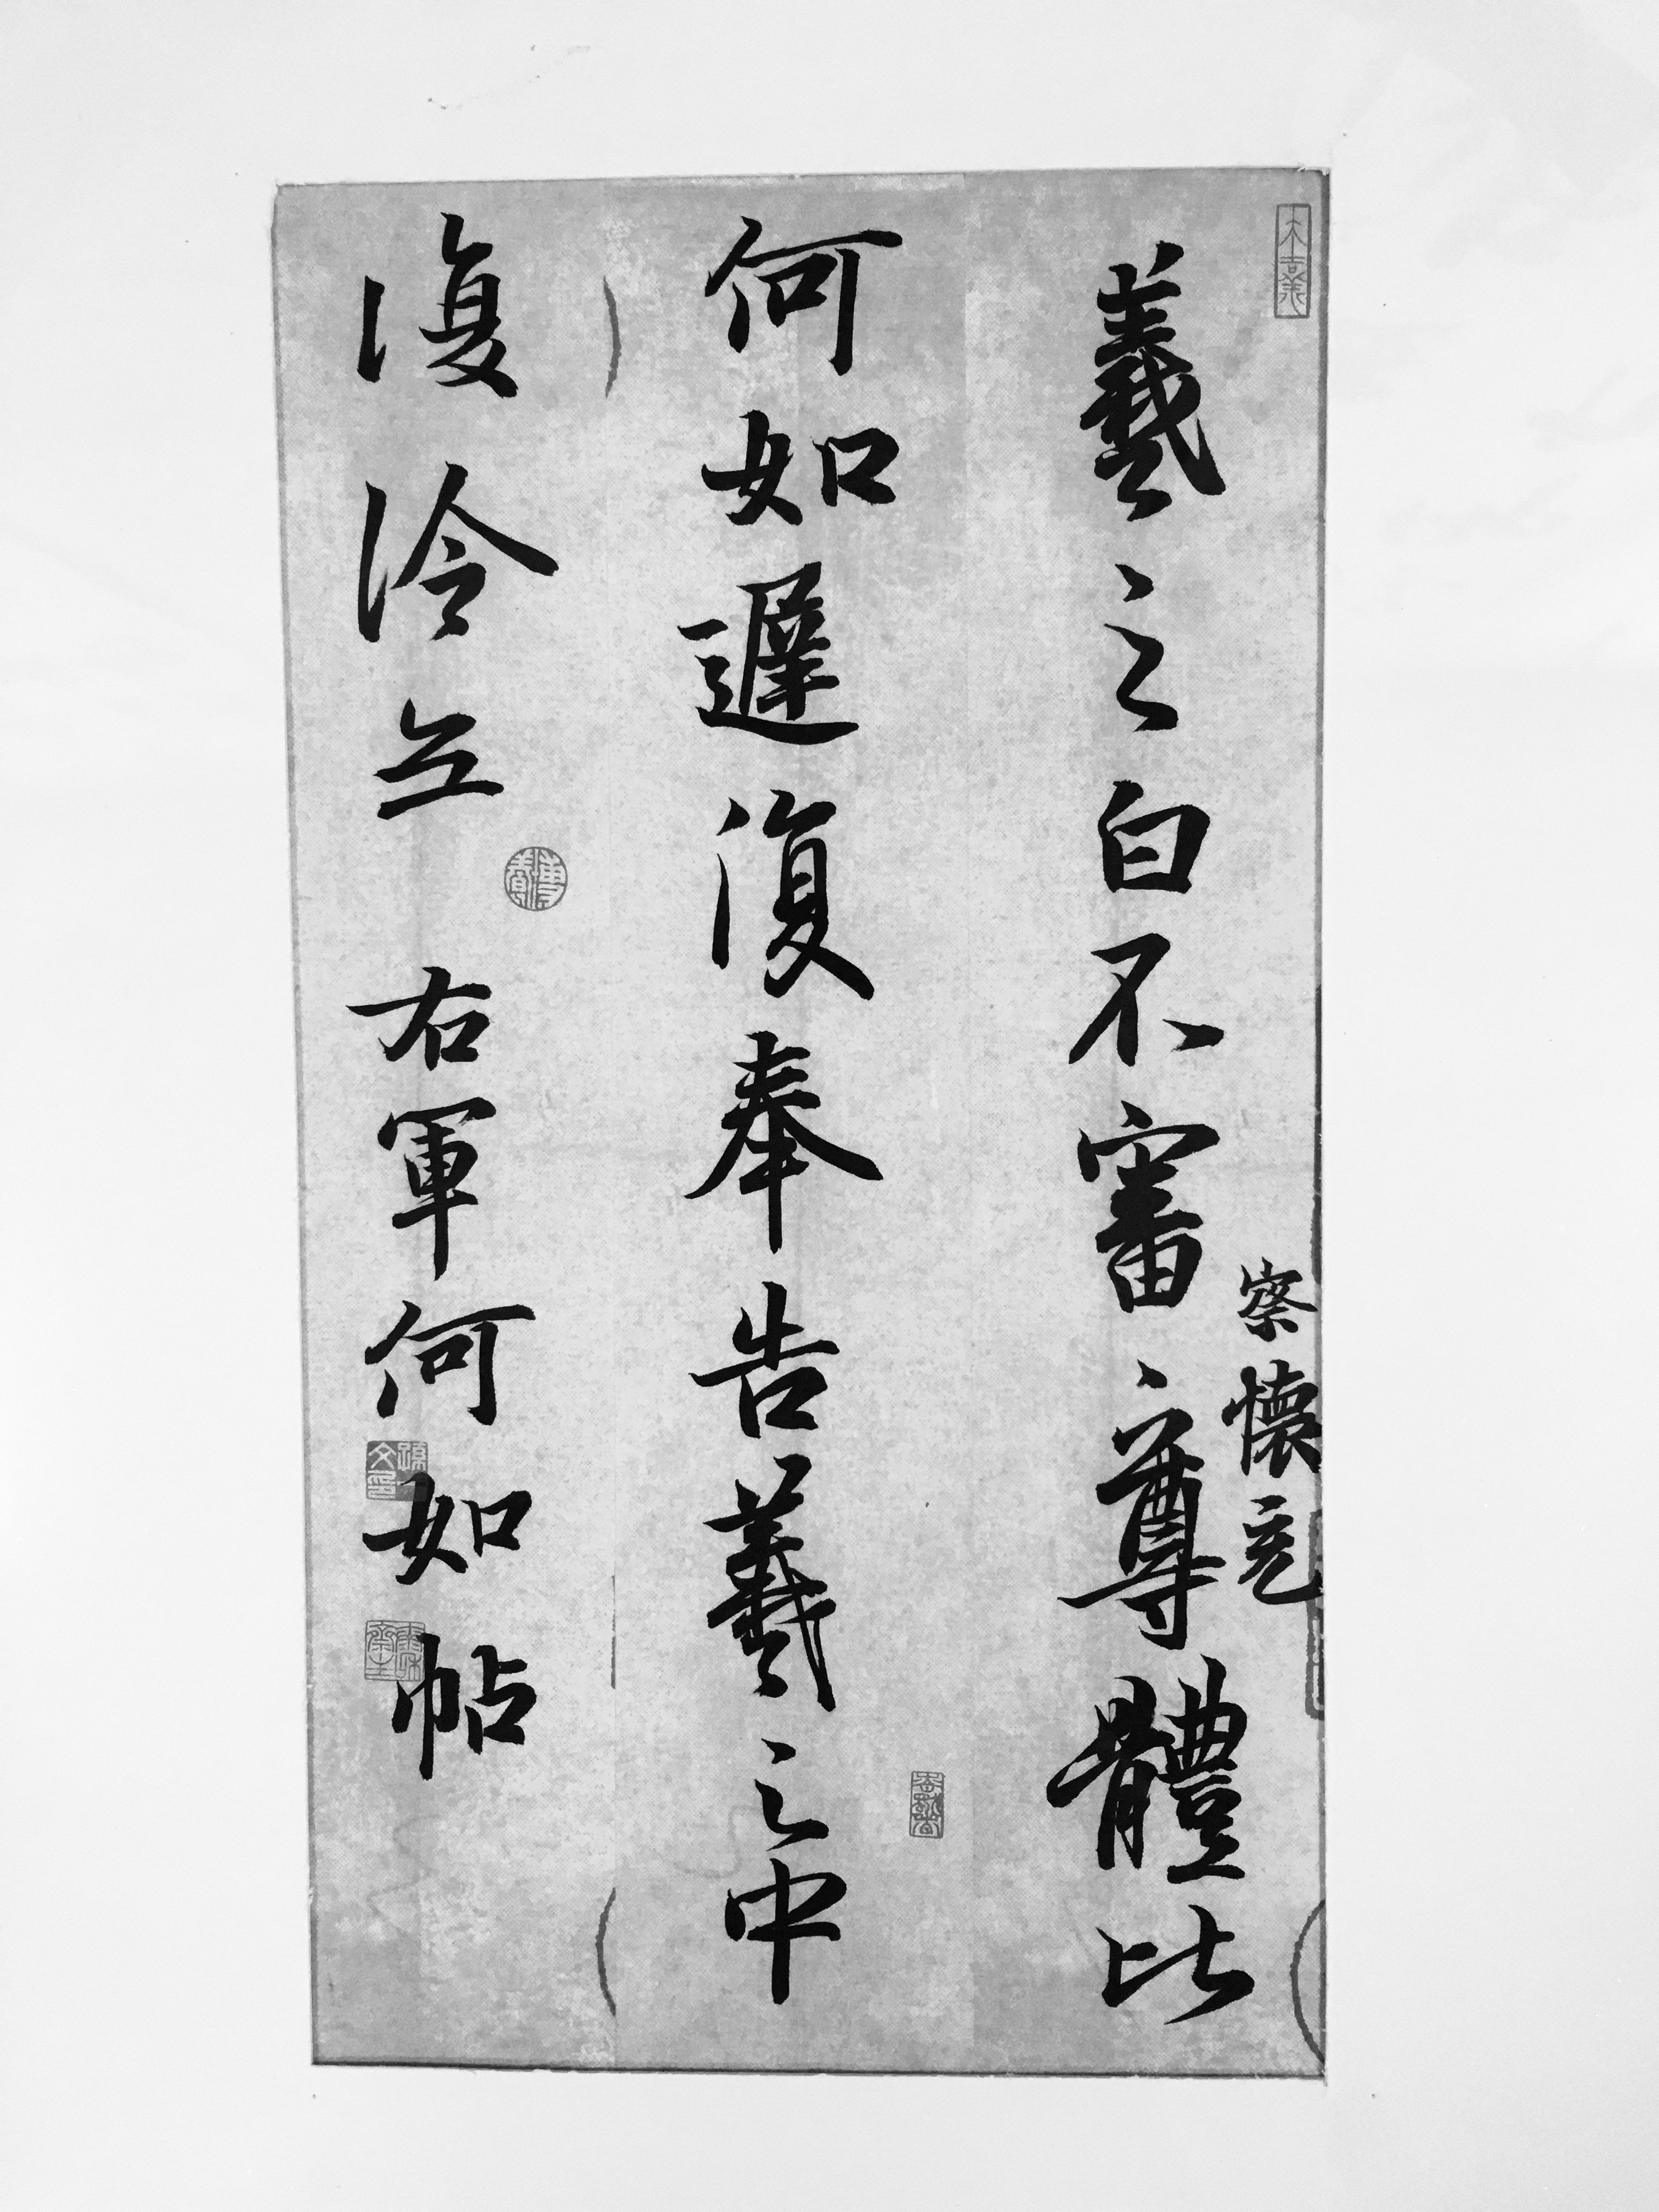 羲之白不審尊體比
察懷充
何如遲復奉告羲之中
復冷無
右軍何如帖